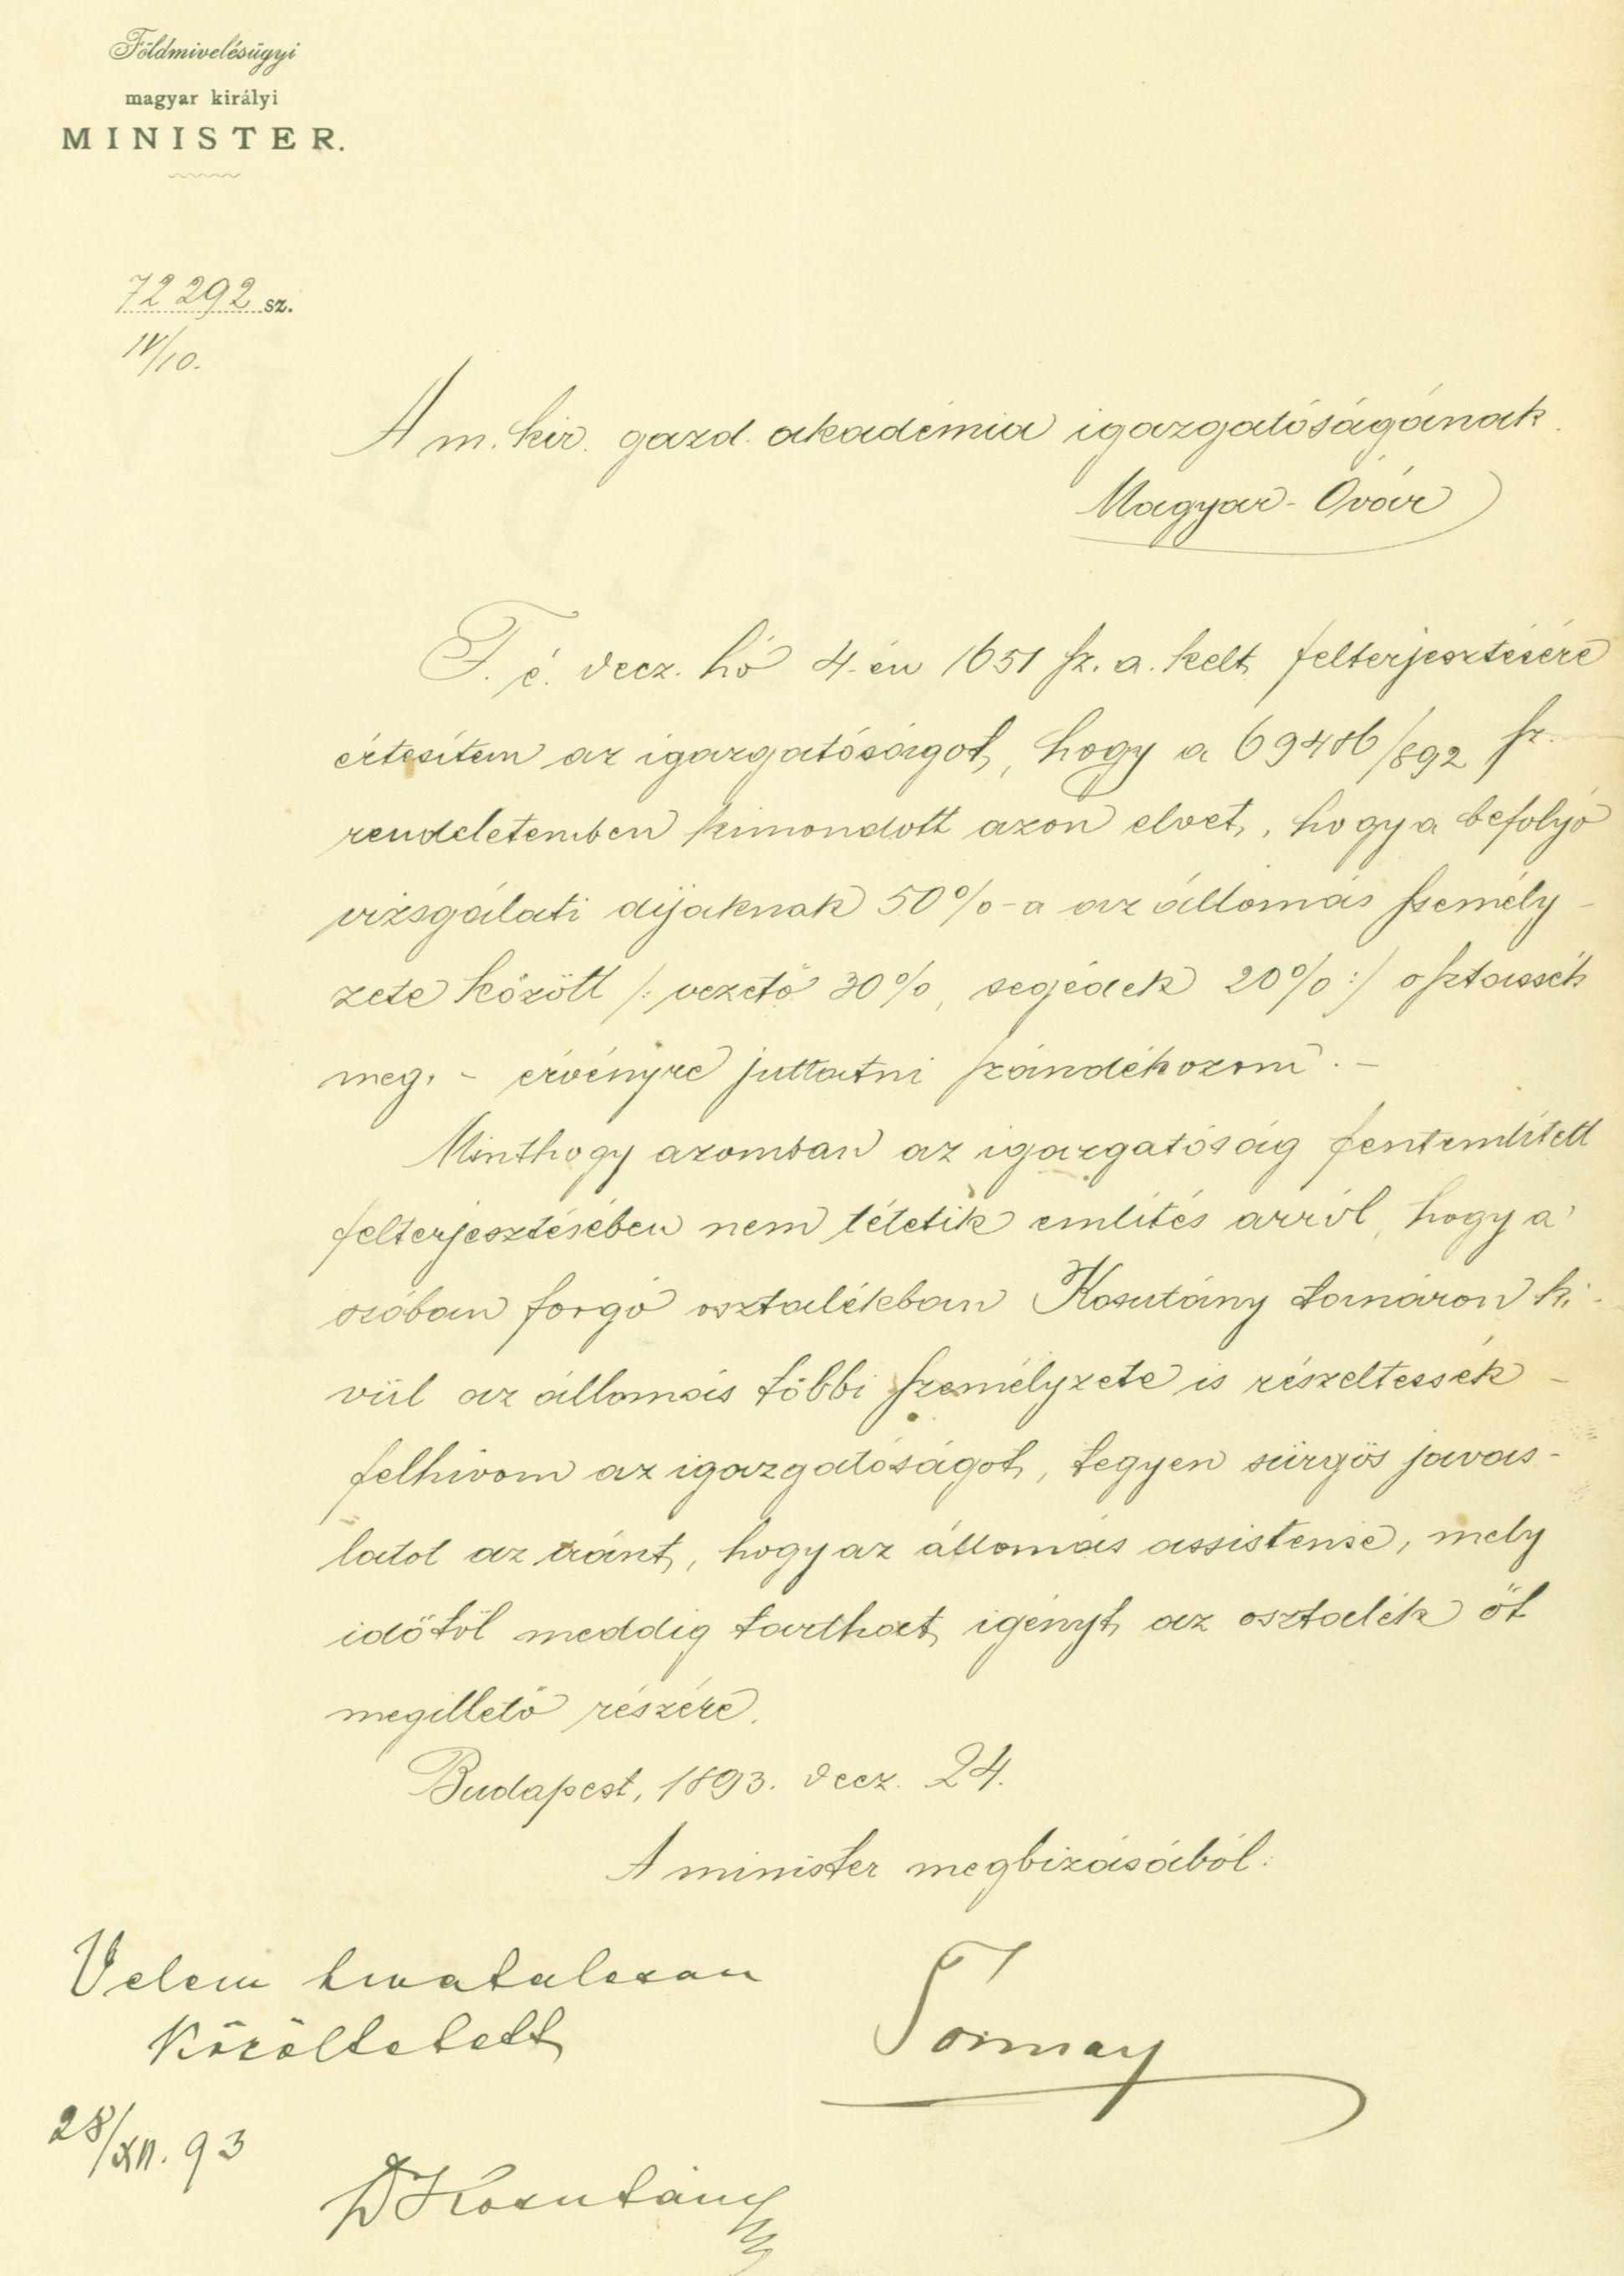 Földmivelésügyi
magyar királyi
MINISTER.
72292 sz.
IV/10.
A m. kir. gazd. akadémia igazgatóságának
Magyar-Óvár
F. é. decz. hó 4-én 1651 sz. a. kelt felterjesztésére
értesítem az igazgatóságot, hogy a 69486/892 sz.
rendeletemben kimondott azon elvet, hogy a befolyó
vizsgálati díjaknak 50%-a az állomás személy-
zete között /: vezető 30%, segédek 20% :/ osztassék
meg, - érvényre juttatni szándékozom. -
Minthogy azomban az igazgatóság fentemlített
felterjesztésében nem tétetik említés arról, hogy a
szóban forgó osztalékban Kosutány tanáron ki-
vül az állomás többi személyzete is részeltessék -
felhivom az igazgatóságot, tegyen sürgős javas-
latot az iránt, hogy az állomás assistense, mely
időtől meddig tarthat igényt az osztalék őt
megillető részére.
Budapest, 1893. decz. 24.
A minister megbizásából:
Velem hivatalosan
Közöltetett
28/XII. 93
Tormay
Dr Kosutány